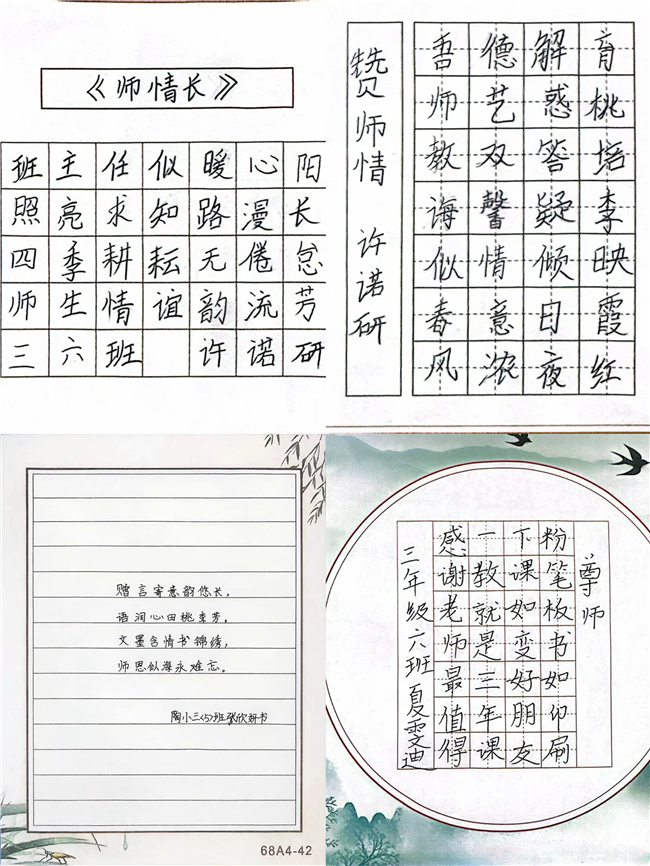 《师情长》
班主任似暖心阳
照亮求知路漫长
四季耕耘无倦怠
师生情谊韵流芳
三六班 许诺研
赞师情 许诺研
吾师教诲似春风
德艺双馨情意浓
解惑答疑倾日夜
育桃培李映霞红
赠言寄意韵悠长，
语润心田桃李芳。
文墨含情书锦绣，
师恩似海永难忘。
陶小三(5)班张欣妍书
68A4-42
尊师
粉笔板书如印刷
下课如变好朋友
一教就是三年课
感谢老师最值得
三年级六班夏雯迪